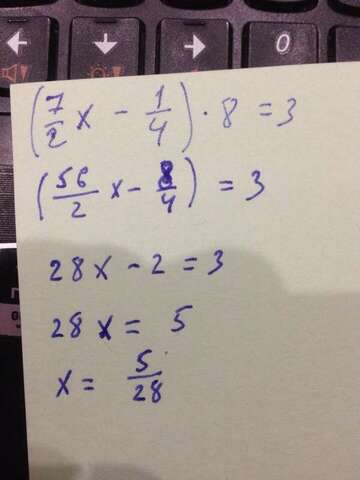 0
(7/2 x - 1/4) · 8 = 3
(56/2 x - 8/4) = 3
28x - 2 = 3
28x = 5
x = 5/28